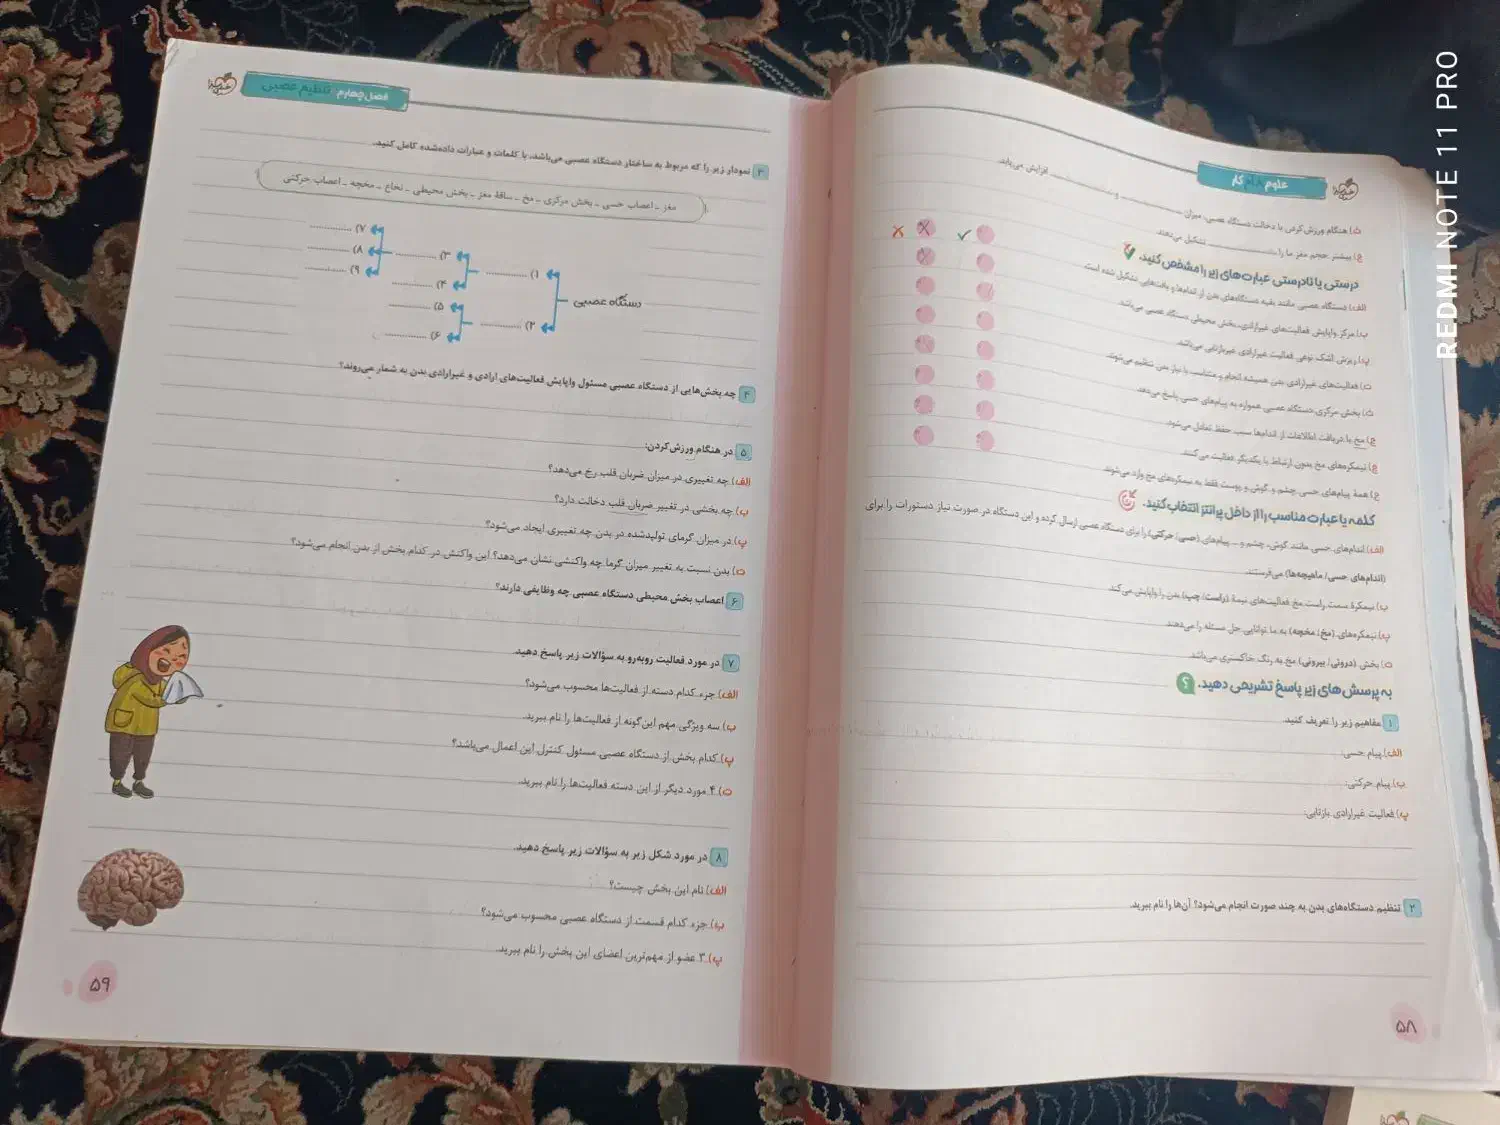 علوم کار
ث) هنگام ورزش کردن با دخالت دستگاه عصبی، میزان ............ و ............ افزایش می‌یابد.
ج) بیشتر حجم مغز ما را ............ تشکیل می‌دهند.
درستی یا نادرستی عبارت‌های زیر را مشخص کنید.
الف) دستگاه عصبی مانند بقیه دستگاه‌های بدن از اندام‌ها و بافت‌هایی تشکیل شده است.
ب) مرکز واپایش فعالیت‌های غیرارادی، بخش محیطی دستگاه عصبی می‌باشد.
پ) ریزش اشک نوعی فعالیت غیرارادی غیربازتابی می‌باشد.
ت) فعالیت‌های غیرارادی بدن همیشه انجام و متناسب با نیاز بدن تنظیم می‌شوند.
ث) بخش مرکزی دستگاه عصبی همواره به پیام‌های حسی پاسخ می‌دهد.
ج) مخ با دریافت اطلاعات از اندام‌ها سبب حفظ تعادل می‌شود.
چ) نیمکره‌های مخ بدون ارتباط با یکدیگر فعالیت می‌کنند.
ح) همهٔ پیام‌های حسی چشم و گوش و پوست فقط به نیمکره‌های مخ وارد می‌شوند.
کلمه یا عبارت مناسب را از داخل پرانتز انتخاب کنید.
الف) اندام‌های حسی مانند گوش، چشم و ... پیام‌های (حسی/ حرکتی) را برای دستگاه عصبی ارسال کرده و این دستگاه در صورت نیاز دستورات را برای
(اندام‌های حسی/ ماهیچه‌ها) می‌فرستند.
ب) نیمکرهٔ سمت راست مخ فعالیت‌های نیمهٔ (راست/ چپ) بدن را واپایش می‌کند.
پ) نیمکره‌های (مخ/ مخچه) به ما توانایی حل مسئله را می‌دهند.
ت) بخش (درونی/ بیرونی) مخ به رنگ خاکستری می‌باشد.
به پرسش‌های زیر پاسخ تشریحی دهید.
۱ مفاهیم زیر را تعریف کنید.
الف) پیام حسی:
ب) پیام حرکتی:
پ) فعالیت غیرارادی بازتابی:
۲ تنظیم دستگاه‌های بدن به چند صورت انجام می‌شود؟ آن‌ها را نام ببرید.
۵۸
فصل چهارم تنظیم عصبی
۳ نمودار زیر را که مربوط به ساختار دستگاه عصبی می‌باشد، با کلمات و عبارات داده‌شده کامل کنید.
مغز ـ اعصاب حسی ـ بخش مرکزی ـ مخ ـ ساقهٔ مغز ـ بخش محیطی ـ نخاع ـ مخچه ـ اعصاب حرکتی
دستگاه عصبی
۱) ............
۲) ............
۳) ............
۴) ............
۵) ............
۶) ............
۷) ............
۸) ............
۹) ............
۴ چه بخش‌هایی از دستگاه عصبی مسئول واپایش فعالیت‌های ارادی و غیرارادی بدن به شمار می‌روند؟
۵ در هنگام ورزش کردن:
الف) چه تغییری در میزان ضربان قلب رخ می‌دهد؟
ب) چه بخشی در تغییر ضربان قلب دخالت دارد؟
پ) در میزان گرمای تولیدشده در بدن چه تغییری ایجاد می‌شود؟
ت) بدن نسبت به تغییر میزان گرما چه واکنشی نشان می‌دهد؟ این واکنش در کدام بخش از بدن انجام می‌شود؟
۶ اعصاب بخش محیطی دستگاه عصبی چه وظایفی دارند؟
۷ در مورد فعالیت روبه‌رو به سؤالات زیر پاسخ دهید.
الف) جزء کدام دسته از فعالیت‌ها محسوب می‌شود؟
ب) سه ویژگی مهم این‌گونه از فعالیت‌ها را نام ببرید.
پ) کدام بخش از دستگاه عصبی مسئول کنترل این اعمال می‌باشد؟
ت) ۴ مورد دیگر از این دسته فعالیت‌ها را نام ببرید.
۸ در مورد شکل زیر به سؤالات زیر پاسخ دهید.
الف) نام این بخش چیست؟
ب) جزء کدام قسمت از دستگاه عصبی محسوب می‌شود؟
پ) ۳ عضو از مهم‌ترین اعضای این بخش را نام ببرید.
۵۹
REDMI NOTE 11 PRO